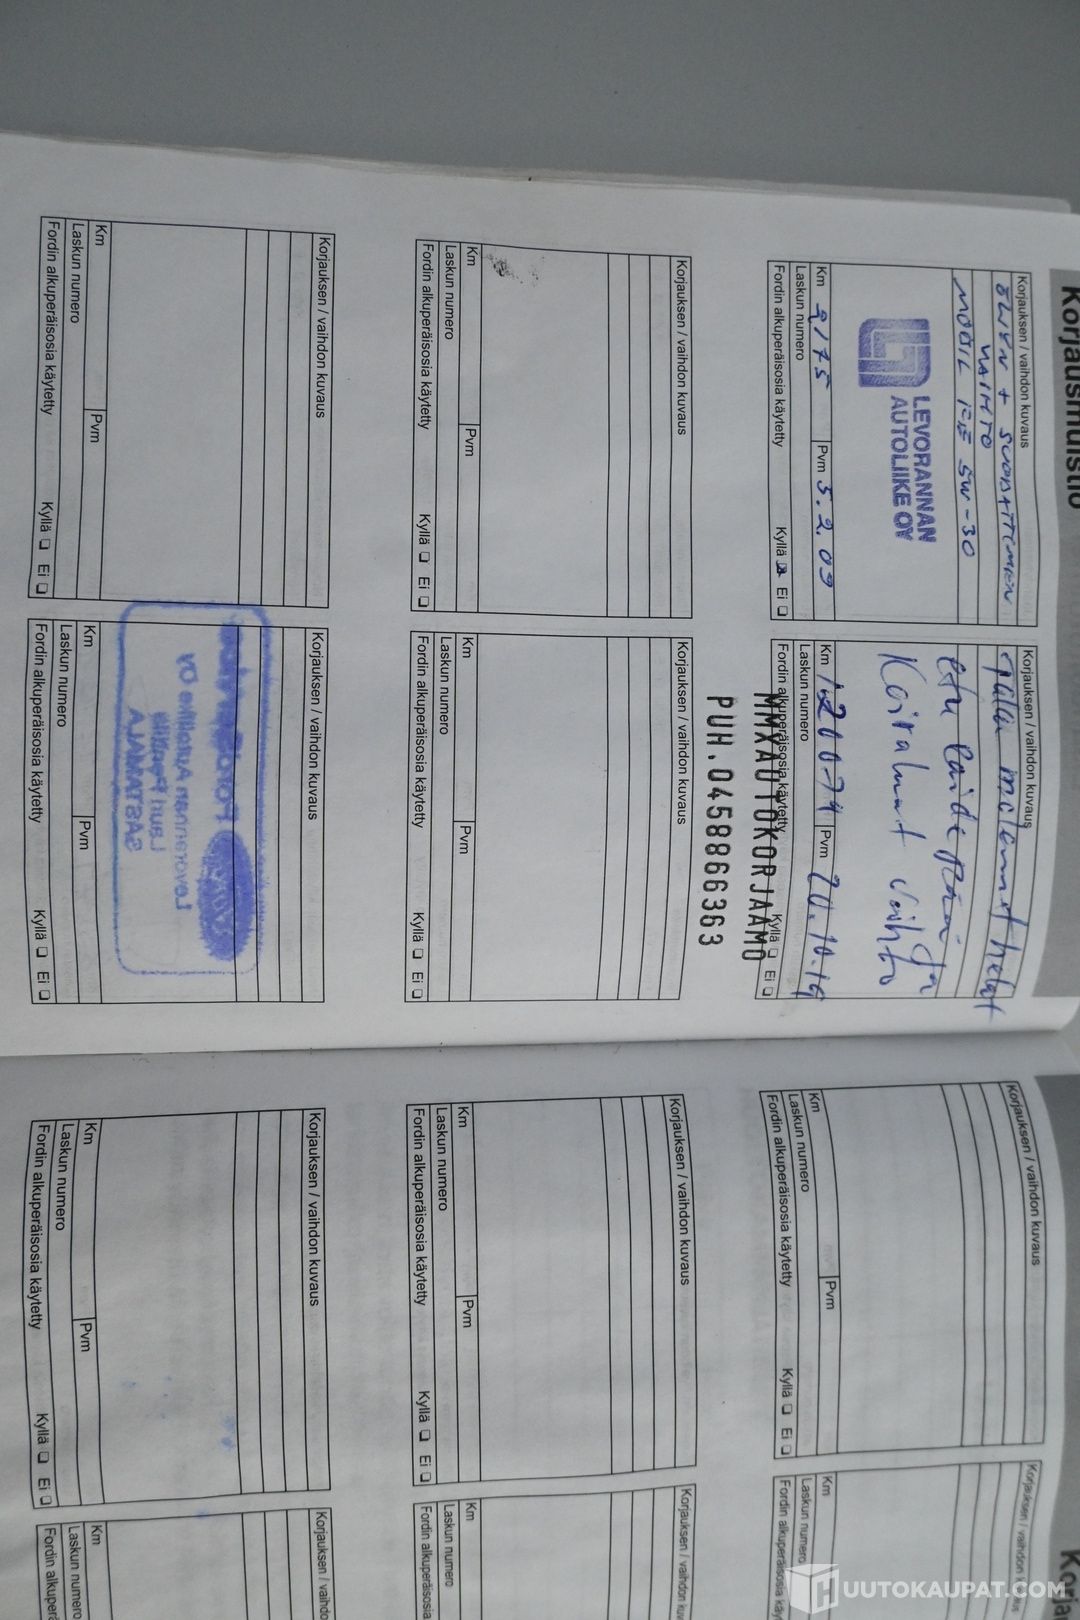 Korjausmuistio
Korjauksen / vaihdon kuvaus
ÖLJYN + SUODATTIMEN
VAIHTO
MOBIL 1 F.E 5W-30
LEVORANNAN
AUTOLIIKE OY
Km 2175 Pvm 5.2.09
Laskun numero
Fordin alkuperäisosia käytetty Kyllä Ei
Korjauksen / vaihdon kuvaus
helat
etu
ja
Koiraluut vaihto
Km 120074 Pvm 20.10.19
Laskun numero
Fordin alkuperäisosia käytetty Kyllä Ei
MMXAUTOKORJAAMO
PUH.0458866363
Korjauksen / vaihdon kuvaus
Km Pvm
Laskun numero
Fordin alkuperäisosia käytetty Kyllä Ei
Korjauksen / vaihdon kuvaus
Km Pvm
Laskun numero
Fordin alkuperäisosia käytetty Kyllä Ei
Korjauksen / vaihdon kuvaus
Km Pvm
Laskun numero
Fordin alkuperäisosia käytetty Kyllä Ei
Korjauksen / vaihdon kuvaus
Levorannan Autoliike Oy
SASTAMALA
Km Pvm
Laskun numero
Fordin alkuperäisosia käytetty Kyllä Ei
Korjauksen / vaihdon kuvaus
Km Pvm
Laskun numero
Fordin alkuperäisosia käytetty Kyllä Ei
Korjauksen / vaihdon kuvaus
Km
Laskun numero
Fordin alkuperäisosia käy
Korjauksen / vaihdon kuvaus
Km Pvm
Laskun numero
Fordin alkuperäisosia käytetty Kyllä Ei
Korjauksen / vaihdon kuv
Km
Laskun numero
Fordin alkuperäisosia
Korjauksen / vaihdon kuvaus
Km Pvm
Laskun numero
Fordin alkuperäisosia käytetty Kyllä Ei
Korjauksen / vaihdo
Km
Laskun numero
Fordin alkuperäiso
HUUTOKAUPAT.COM